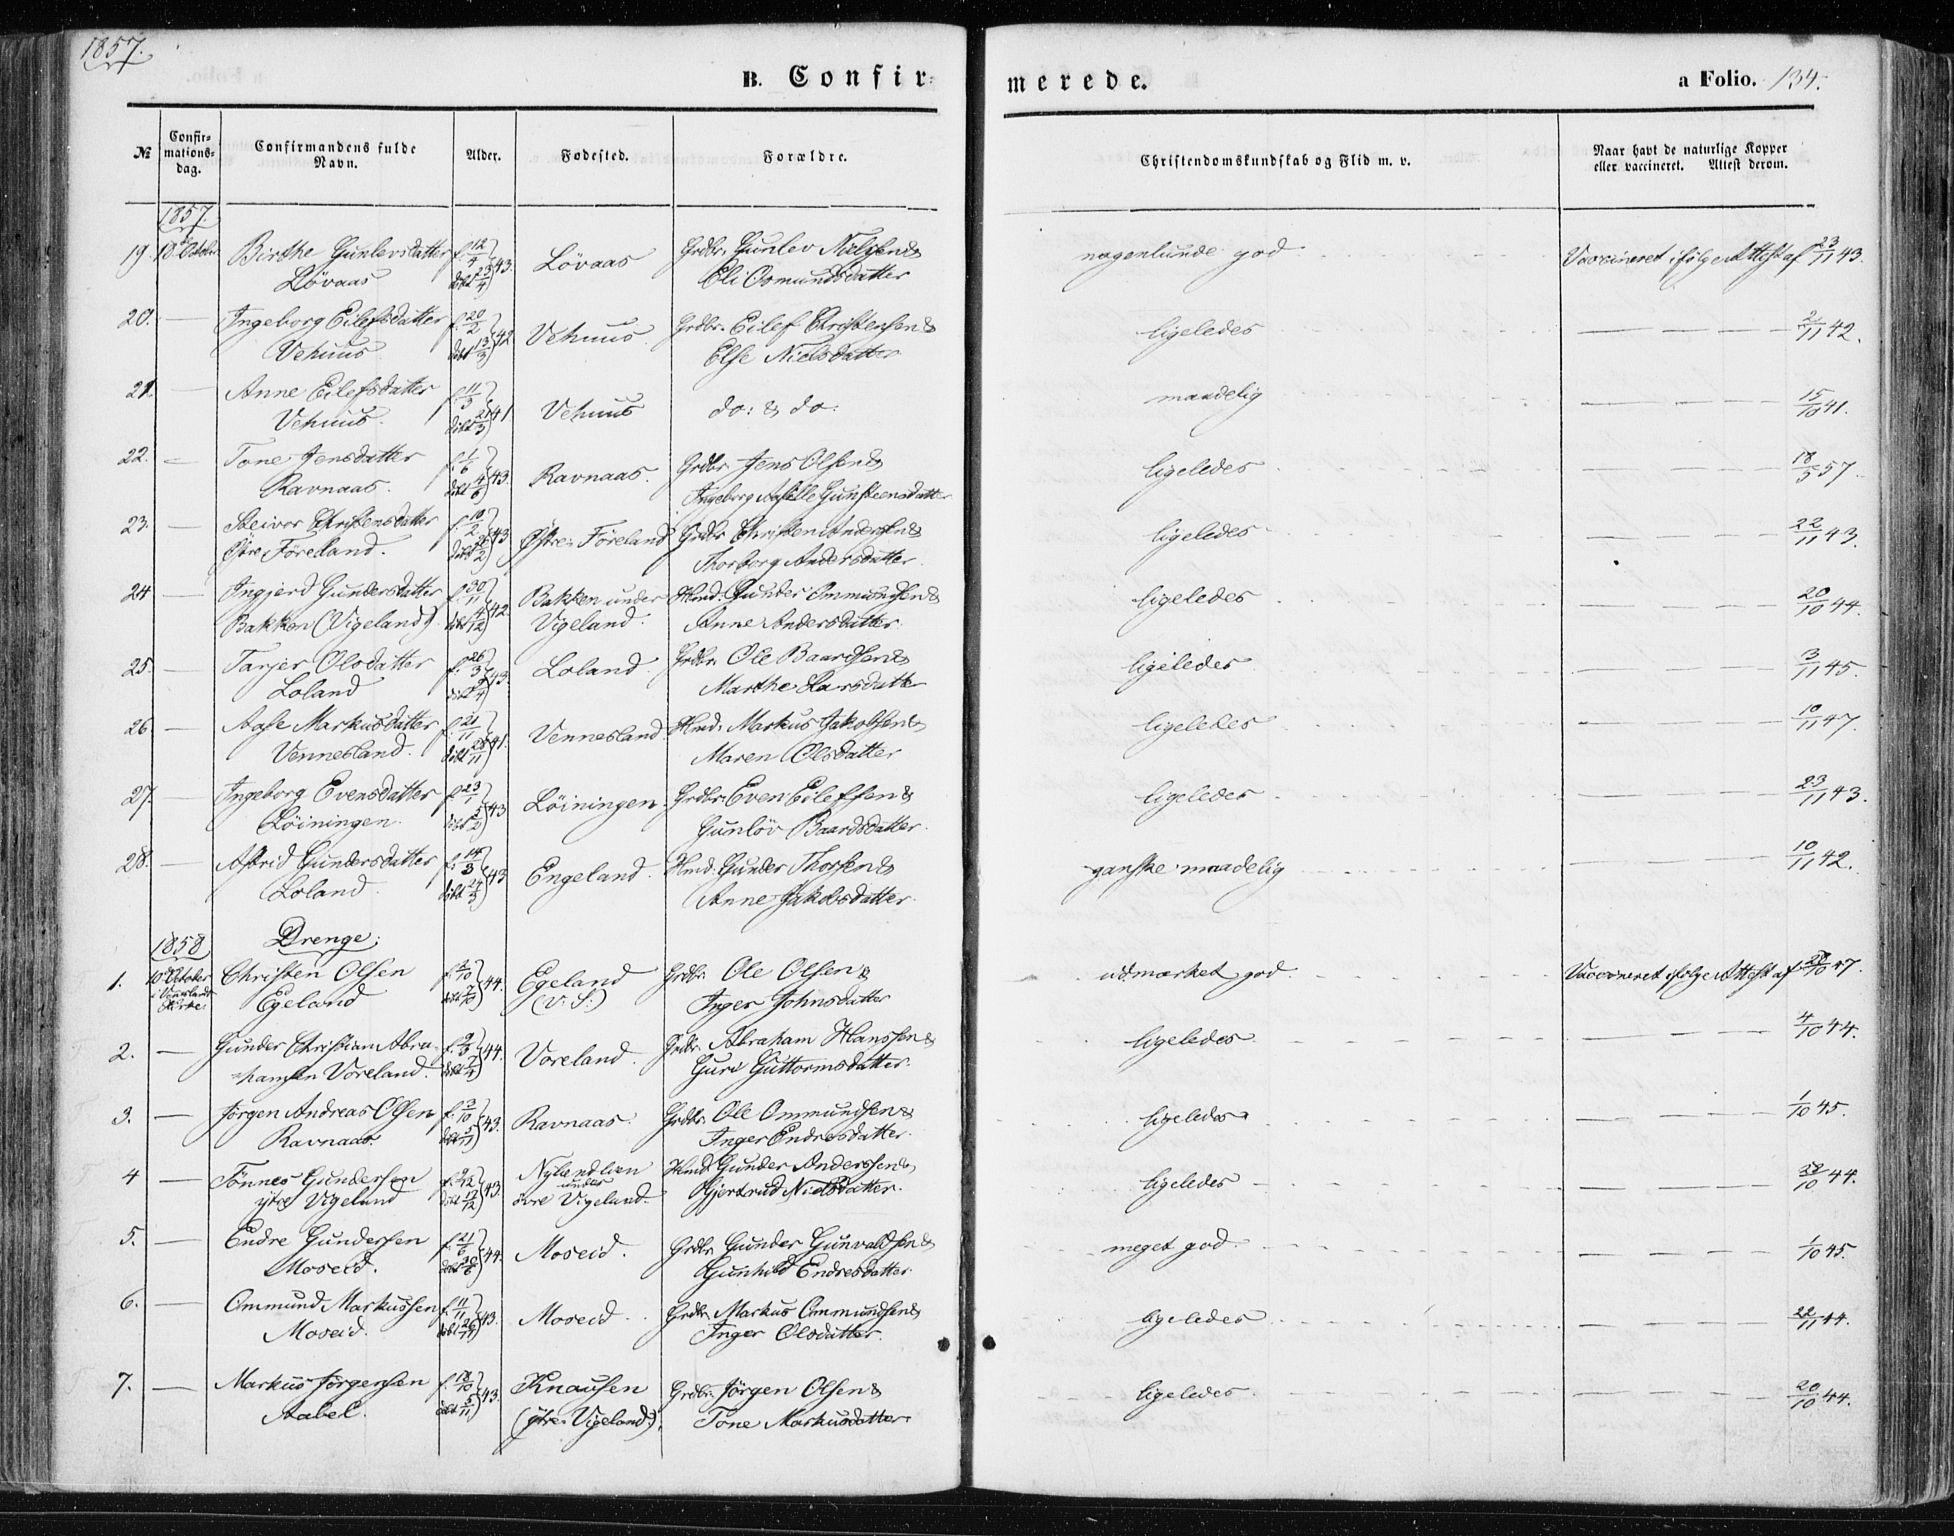 1857.
B. Confir-
merede.
a Folio. 134.
№
Confir-
mations-
dag.
Confirmandens fulde
Navn.
Alder.
Fødested.
Forældre.
Christendomskundskab og Flid m. v.
Naar havt de naturlige Kopper
eller vaccineret. Attest derom.
1857.
19. 18 October Birthe Gunlevsdatter f. 12/4 Lövaas Grdbr. Gunlev Nielsen & nogenlunde god Vaccineret ifølge Attest af 23/11 43.
Lövaas döbt 23/4 43. Eli Osmundsdatter
20. — Ingeborg Eilefsdatter f. 20/2 Vehuus. Grdbr. Eilef Christensen & ligeledes — — — 2/11 42.
Vehuus döbt 13/3 42 Else Nielsdatter
21. — Anne Eilefsdatter f. 11/3 Vehuus do: & do: maadelig — — — 15/10 41.
Vehuus. döbt 21/3 41.
22. — Tone Jensdatter f. 1/6 Ravnaas. Grdbr. Jens Olsen & ligeledes — — — 18/5 57.
Ravnaas. döbt 4/6 43. Ingeborg Aselle Gunsteensdatter
23. — Steivor Christensdatter f. 10/2 Østre Föreland Grdbr Christen Andersen & ligeledes — — — 22/11 43.
Østre Föreland. döbt 26/2 43 Thorborg Andersdatter
24 — Ingjerd Gundersdatter f. 30/11 Bakken under Hmd. Gunder Ommundsen & ligeledes — — — 20/10 44.
Bakken (Vigeland) döbt 4/12 42. Vigeland. Anne Andersdatter.
25. — Tarjer Olsdatter f. 26/3 Loland Grdbr. Ole Baardsen & ligeledes — — — 3/11 45.
Loland 43. Marthe Larsdatter
26 — Aase Markusdatter f. 21/11 Vennesland. Hmd. Markus Jakobsen & ligeledes — — — 10/11 47.
Vennesland. döbt 28/11 41. Maren Olsdatter
27. — Ingeborg Evensdatter f. 23/1 Löiningen. Grdbr. Even Eilefsen & ligeledes — — — 23/11 43.
Löiningen. döbt 5/2 43 Gunlöv Baardsdatter.
28. — Astrid Gundersdatter f. 14/3 Engeland. Hmd. Gunder Thorsen & ganske maadelig — — — 10/11 42.
Loland döbt 24/3 43 Anne Jakobsdatter.
1858 Drenge:
1. 10 October Christen Olsen f. 2/10 Egeland Grdbr. Ole Olsen & udmærket god Vaccineret ifølge Attest af 28/10 47.
i Vennesland Kirke. Egeland döbt 7/10 44. (v. S:) Inger Johnsdatter
2. — Gunder Christian Abra- f. 9/3 Voreland Grdbr. Abraham Hanssen & ligeledes — — — 4/10 44.
-hamsen Voreland. döbt 7/4 44. Guri Guttormsdatter.
3. — Jörgen Andreas Olsen f. 3/10 Ravnaas. Grdbr. Ole Ommundsen & ligeledes — — — 1/10 45.
Ravnaas. döbt 5/11 43. Inger Endresdatter.
4 — Tönnes Gundersen f. 9/12 Nylændlien Hmd. Gunder Anderssen & ligeledes — — — 10 44.
ytre Vigeland döbt 17/12 43. under övre Vigeland. Gjertrud Nielsdatter.
5. — Endre Gundersen f. 21/6 Moseid. Grdbr. Gunder Gunvaldsen & meget god. — — — 1/10 45.
Moseid. döbt 30/6 44. Gunhild Endresdatter.
6. — Ommund Markussen f. 11/11 Moseid. Grdbr. Markus Ommundsen & ligeledes — — — 22/11 44.
Moseid. döbt 26/11 43. Inger Olsdatter.
7. — Markus Jörgensen f. 18/10 Knausen Grdbr. Jörgen Olsen & ligeledes — — — 20/10 44.
Aabel. döbt 5/11 43. (ytre Vigeland). Tone Markusdatter